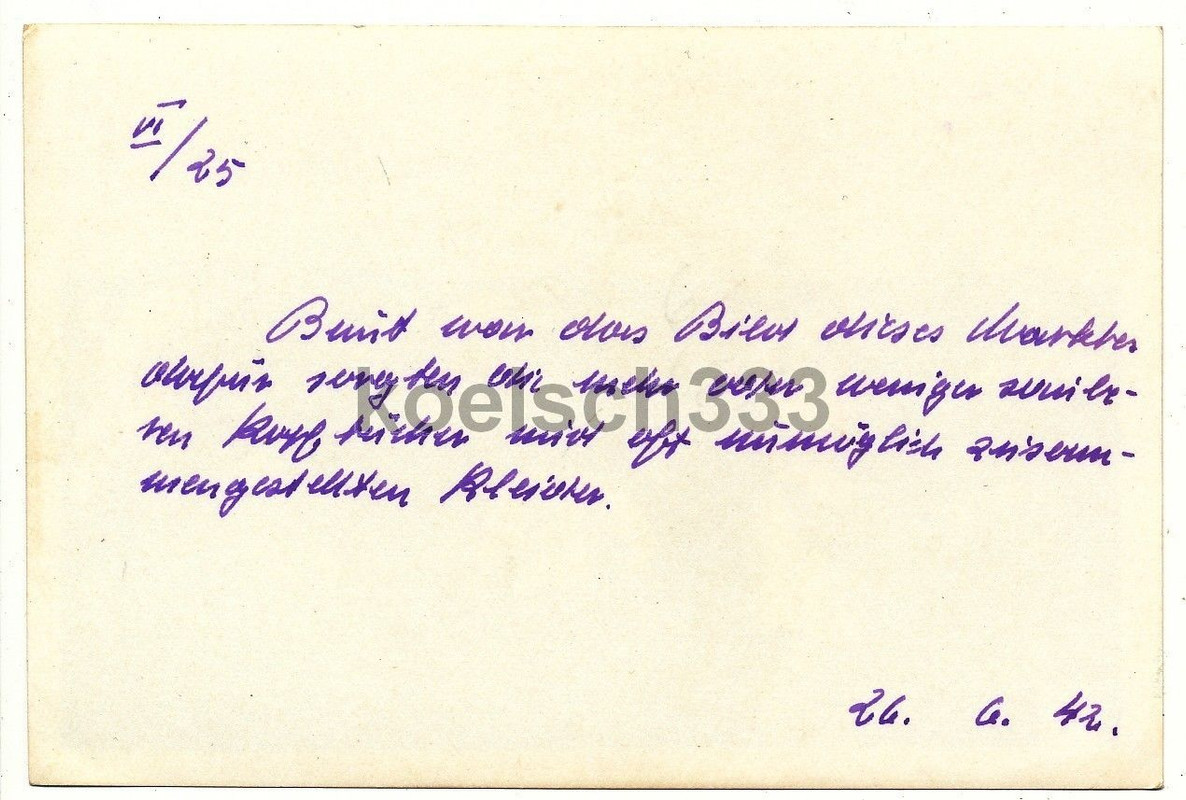 VI/25
Bunt war das Bild dieses Marktes
dafür sorgten die mehr oder weniger saube-
ren Kopftücher und oft unmöglich zusam-
mengestellten Kleider.
koelsch333
26. 6. 42.